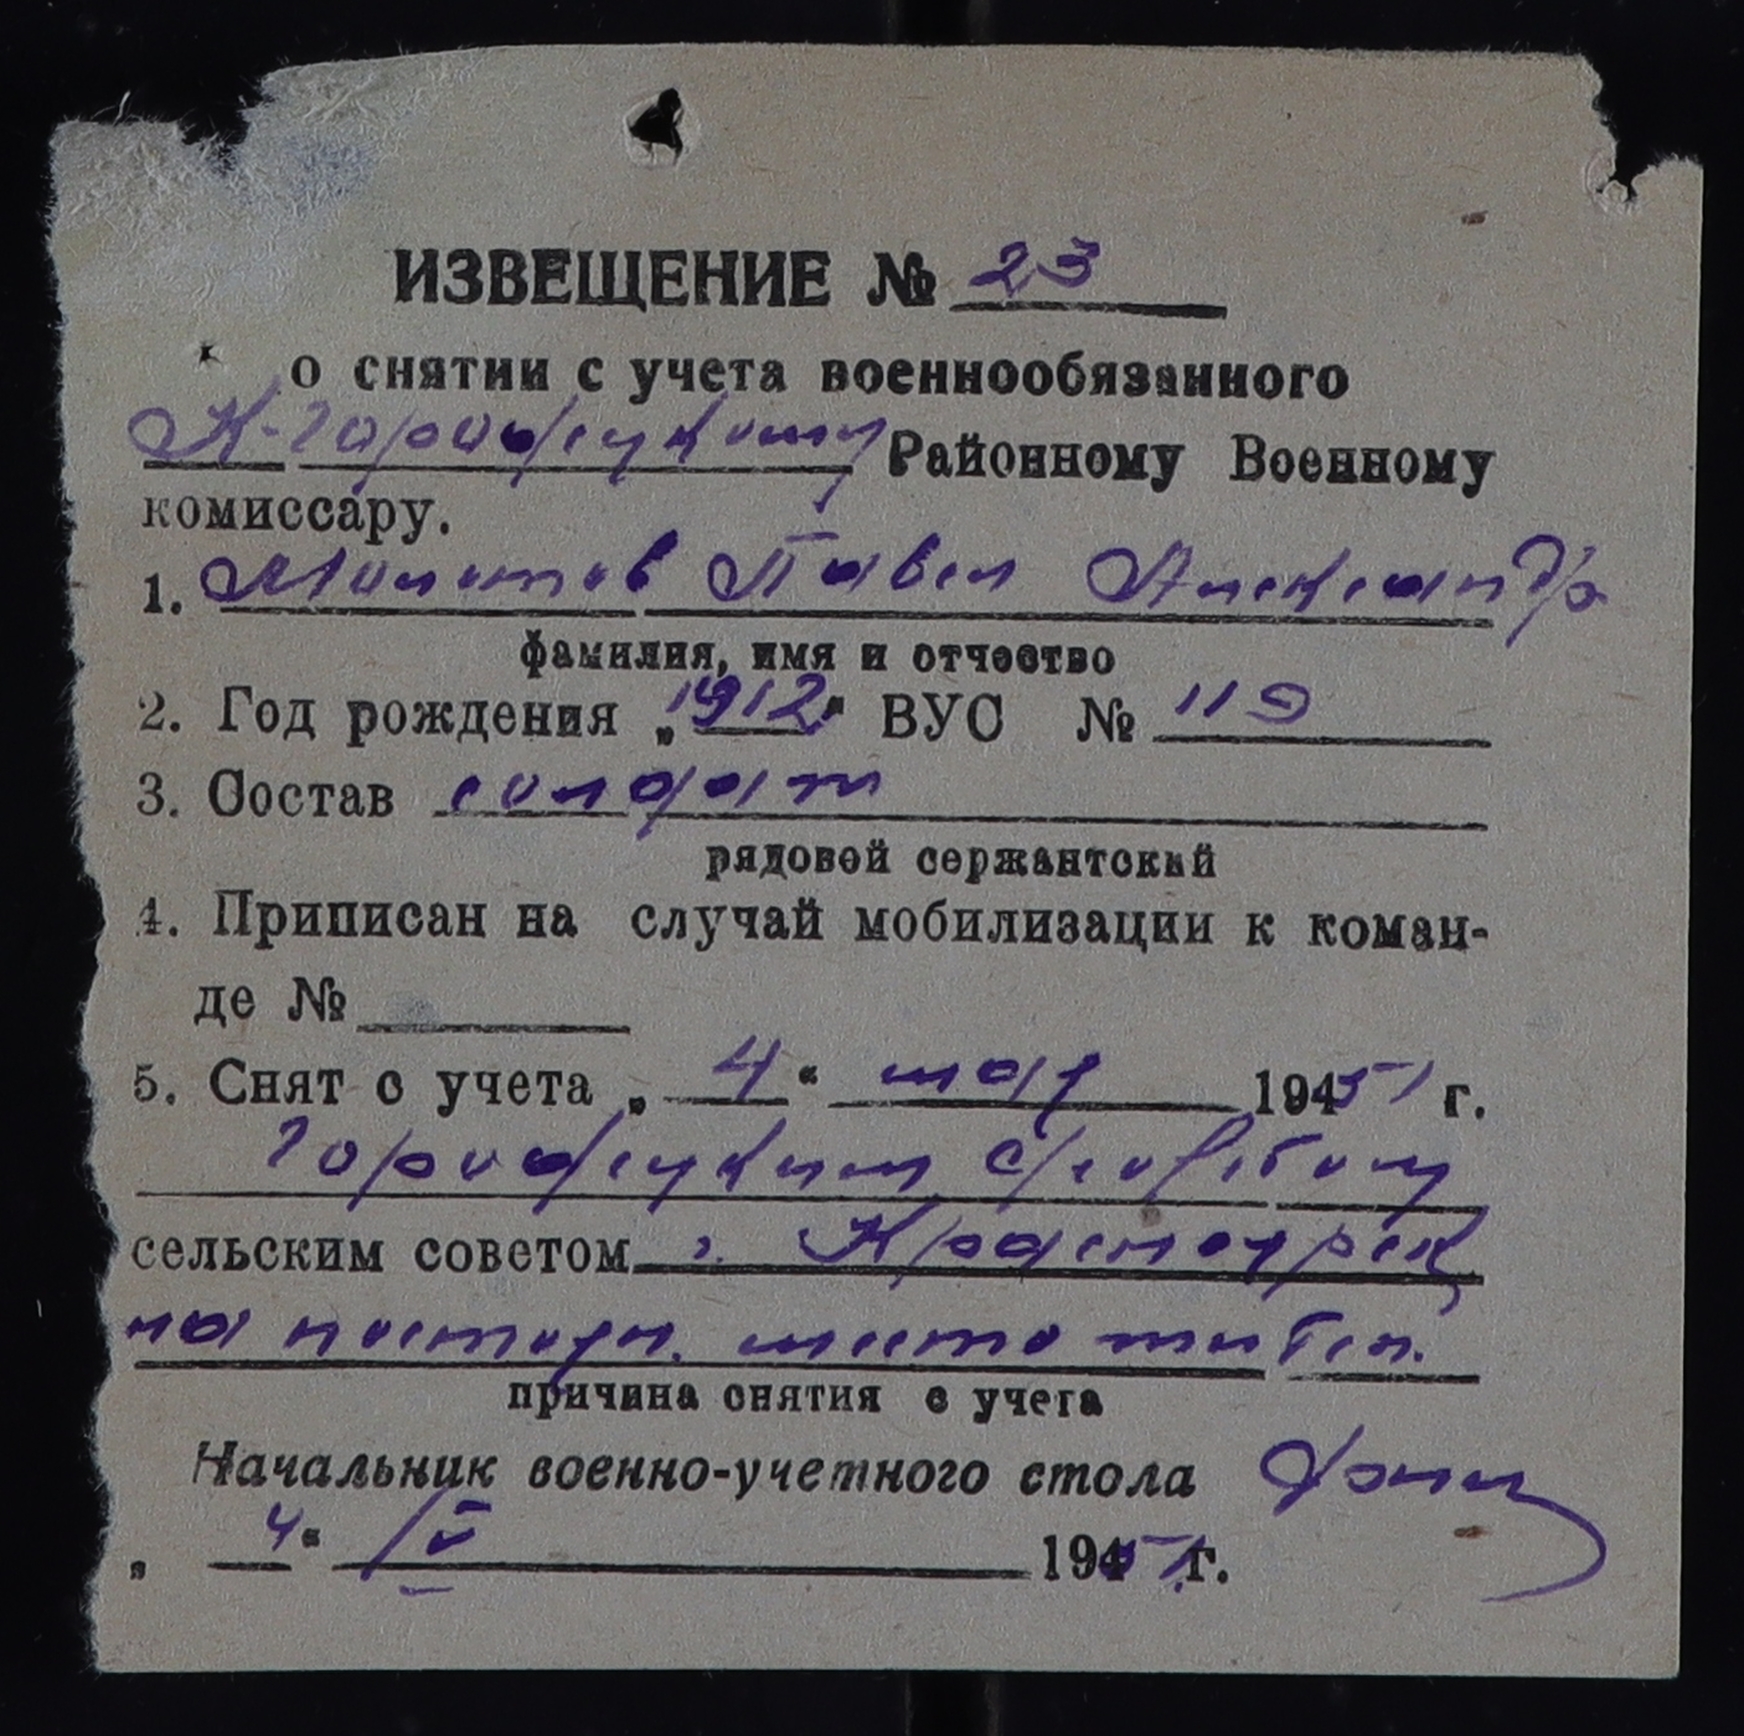 ИЗВЕЩЕНИЕ № 23
о снятии с учета военнообязанного
К-Городецкому Районному Военному
комиссару.
1. Молотов Павел Александр
фамилия, имя и отчество
2. Год рождения „1912“ ВУС № 119
3. Состав солдат
рядовой сержантский
4. Приписан на случай мобилизации к коман-
де №
5. Снят с учета „4“ мая 1951 г.
Городецким
сельским советом г.
на постоян. место жител.
причина снятия с учета
Начальник военно-учетного стола
„4“ /V 1951 г.